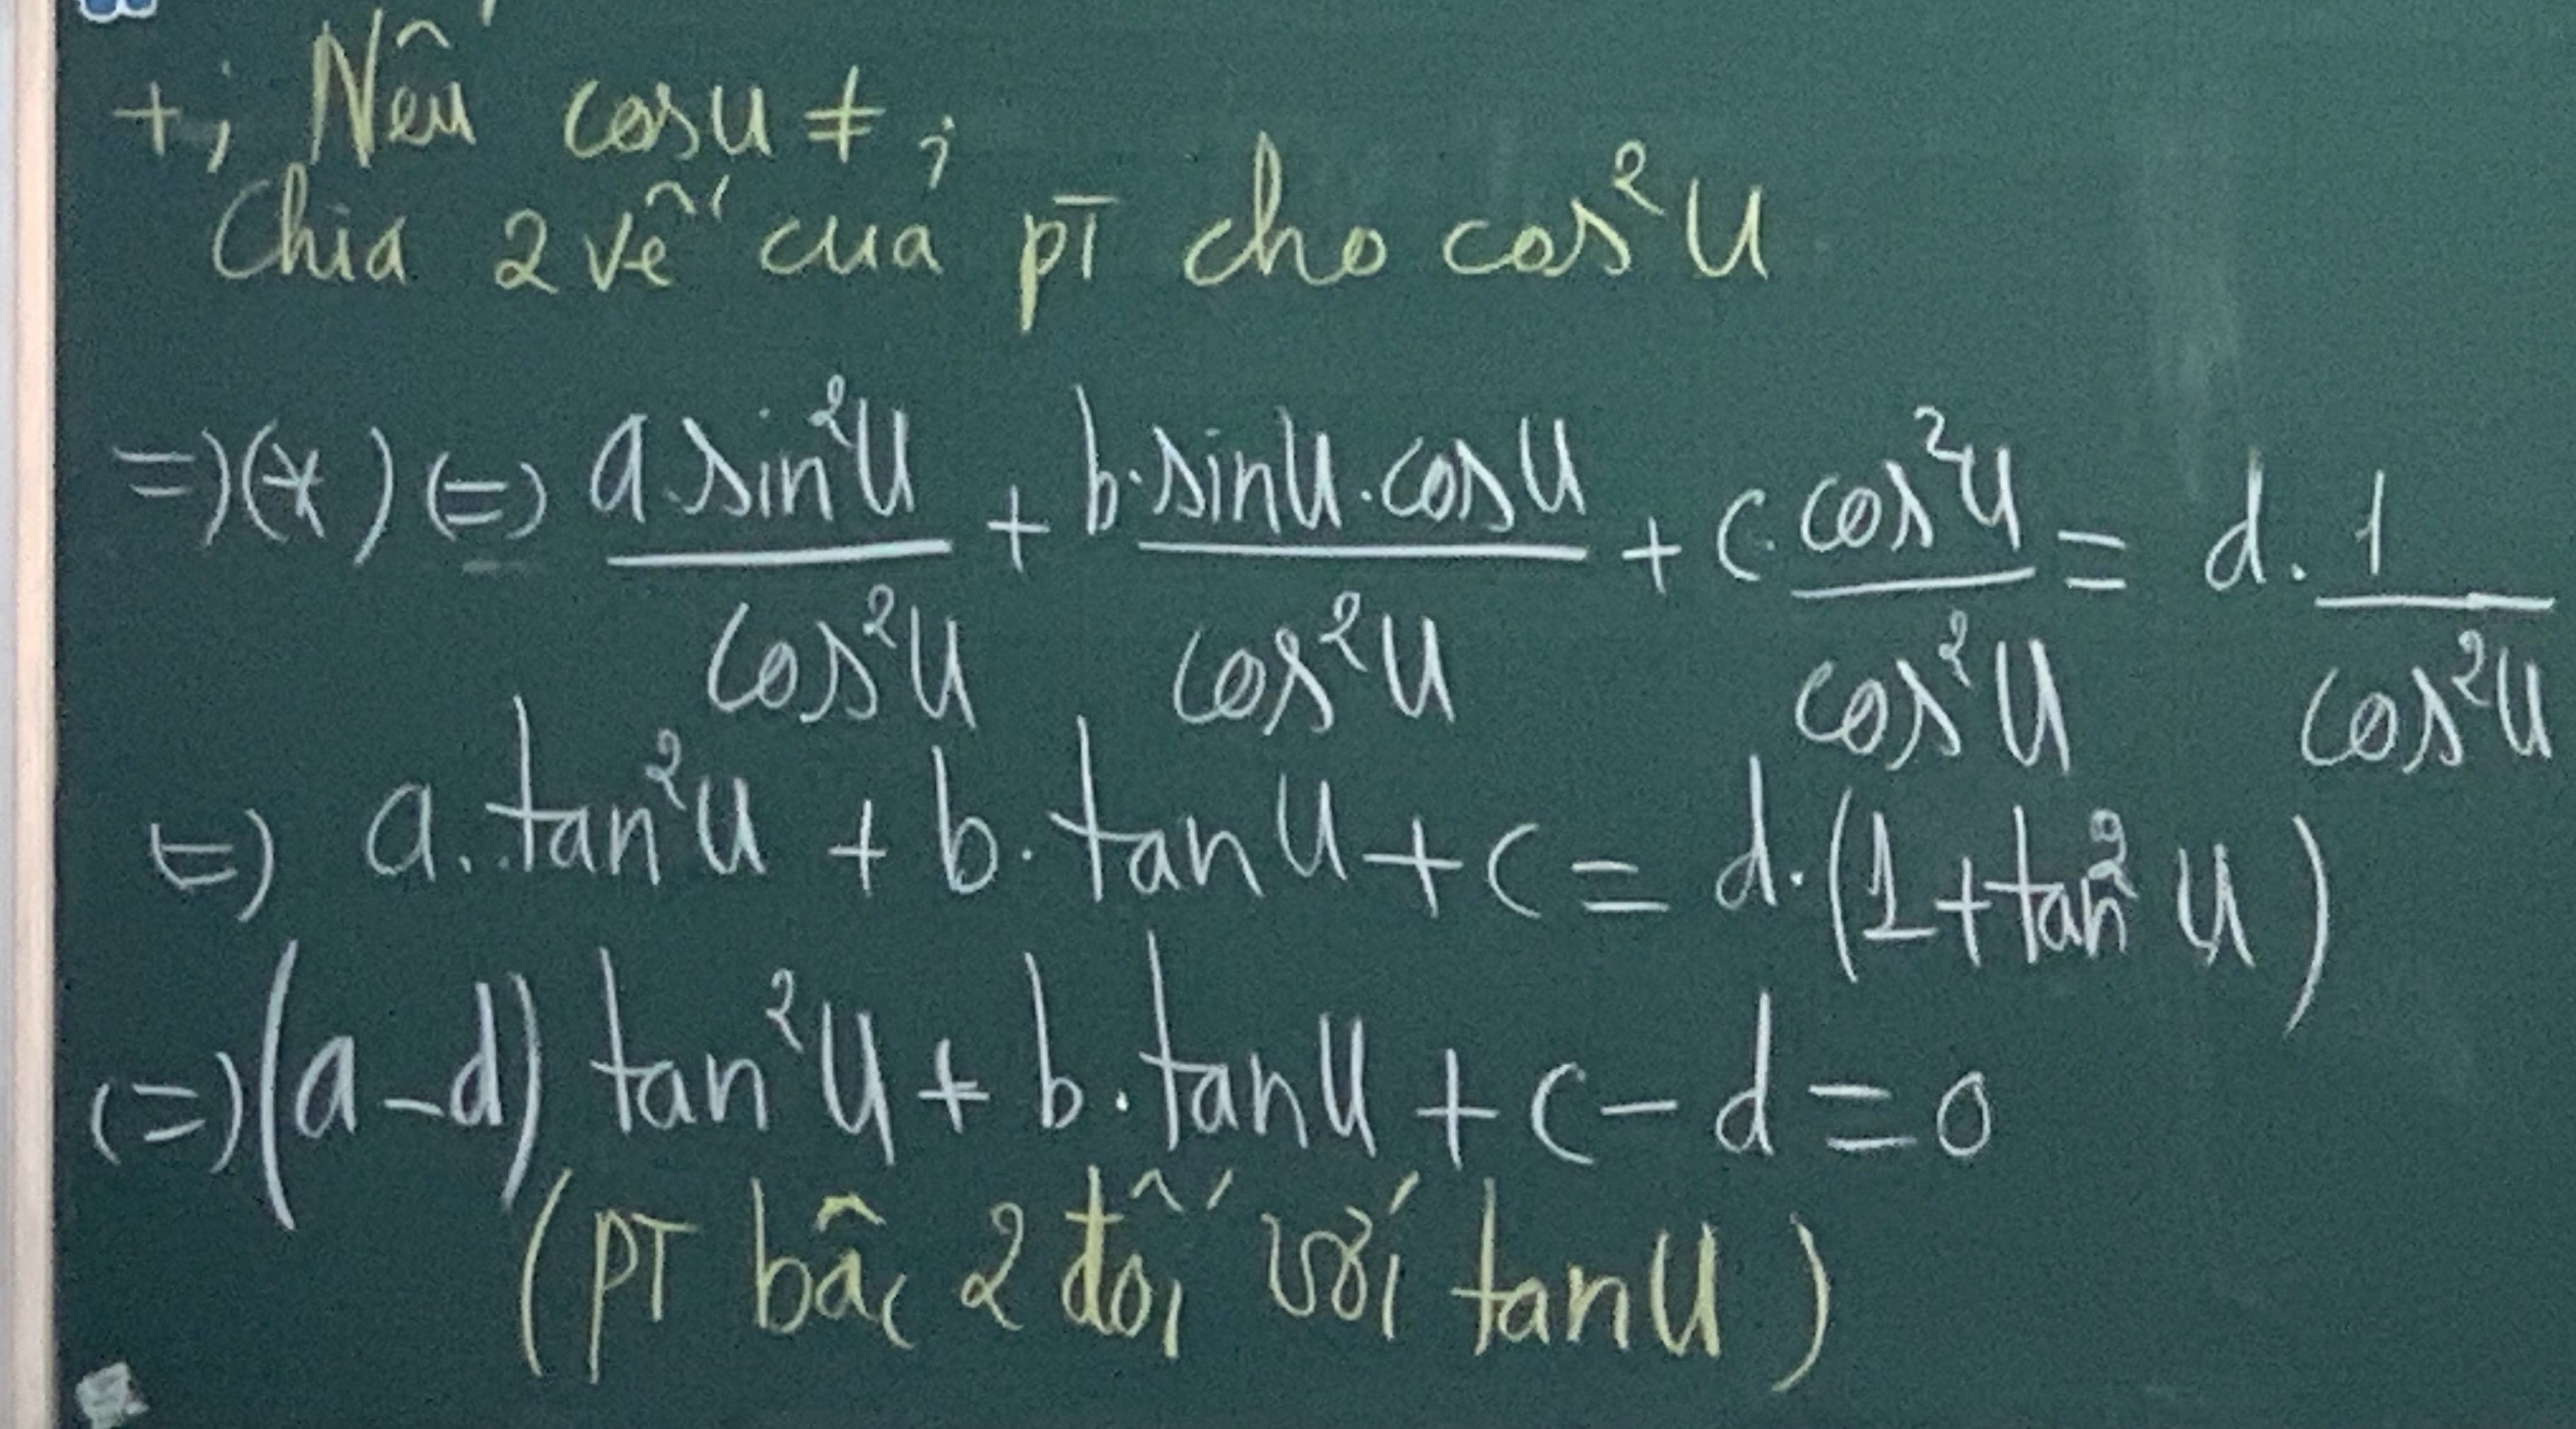 +, Nếu cosu ≠ ,
Chia 2 vế của pT cho cos²u
=>(*) <=> a.sin²u/cos²u + b.sinu.cosu/cos²u + c.cos²u/cos²u = d.1/cos²u
=> a.tan²u + b.tanu + c = d.(1+tan²u)
<=> (a-d) tan²u + b.tanu + c - d = 0
(PT bâc 2 đối với tanu)